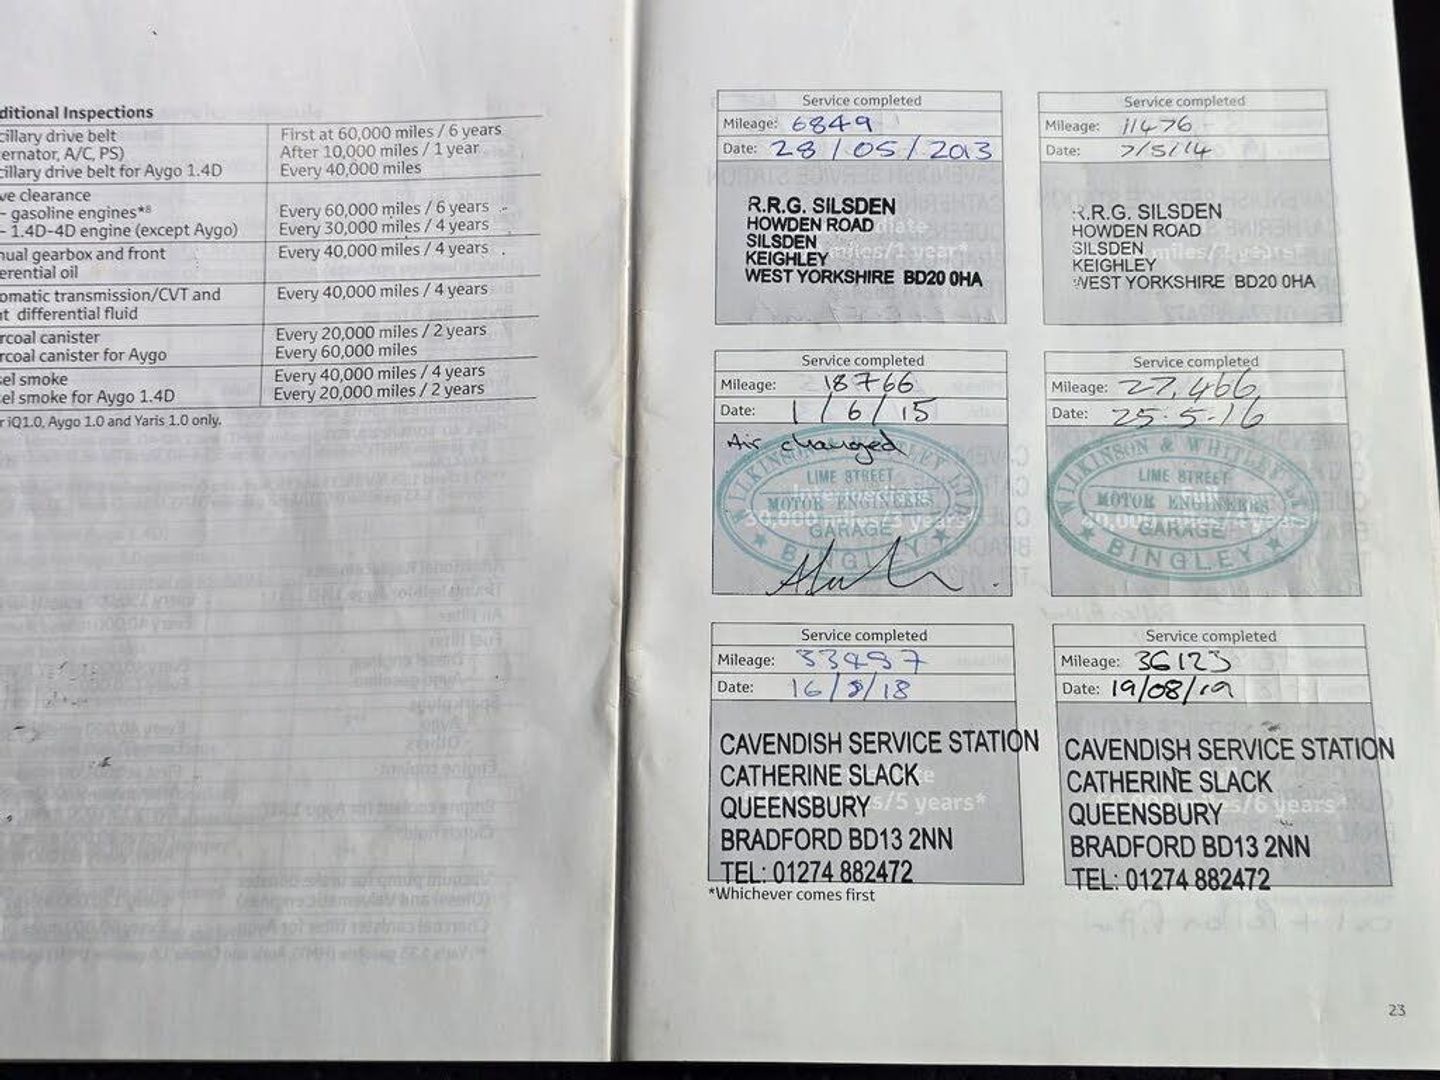 ditional Inspections
cillary drive belt
ernator, A/C, PS)
First at 60,000 miles / 6 years
After 10,000 miles / 1 year
cillary drive belt for Aygo 1.4D
Every 40,000 miles
ve clearance
– gasoline engines*8
Every 60,000 miles / 6 years
– 1.4D-4D engine (except Aygo)
Every 30,000 miles / 4 years
nual gearbox and front
erential oil
Every 40,000 miles / 4 years
omatic transmission/CVT and
nt differential fluid
Every 40,000 miles / 4 years
rcoal canister
Every 20,000 miles / 2 years
rcoal canister for Aygo
Every 60,000 miles
sel smoke
Every 40,000 miles / 4 years
sel smoke for Aygo 1.4D
Every 20,000 miles / 2 years
r iQ1.0, Aygo 1.0 and Yaris 1.0 only.
Service completed
Mileage: 6849
Date: 28/05/2013
R.R.G. SILSDEN
HOWDEN ROAD
SILSDEN
KEIGHLEY
WEST YORKSHIRE BD20 0HA
Service completed
Mileage: 11476
Date: 7/5/14
R.R.G. SILSDEN
HOWDEN ROAD
SILSDEN
KEIGHLEY
WEST YORKSHIRE BD20 0HA
Service completed
Mileage: 18766
Date: 1/6/15
Air changed
WILKINSON & WHITLEY LTD
LIME STREET
MOTOR ENGINEERS
GARAGE
BINGLEY
Service completed
Mileage: 27,466
Date: 25.5.16
WILKINSON & WHITLEY LTD
LIME STREET
MOTOR ENGINEERS
40,000 miles/4 years
GARAGE
BINGLEY
Service completed
Mileage: 33497
Date: 16/8/18
CAVENDISH SERVICE STATION
CATHERINE SLACK
QUEENSBURY
BRADFORD BD13 2NN
TEL: 01274 882472
Service completed
Mileage: 36123
Date: 19/08/19
CAVENDISH SERVICE STATION
CATHERINE SLACK
QUEENSBURY
BRADFORD BD13 2NN
TEL: 01274 882472
*Whichever comes first
23